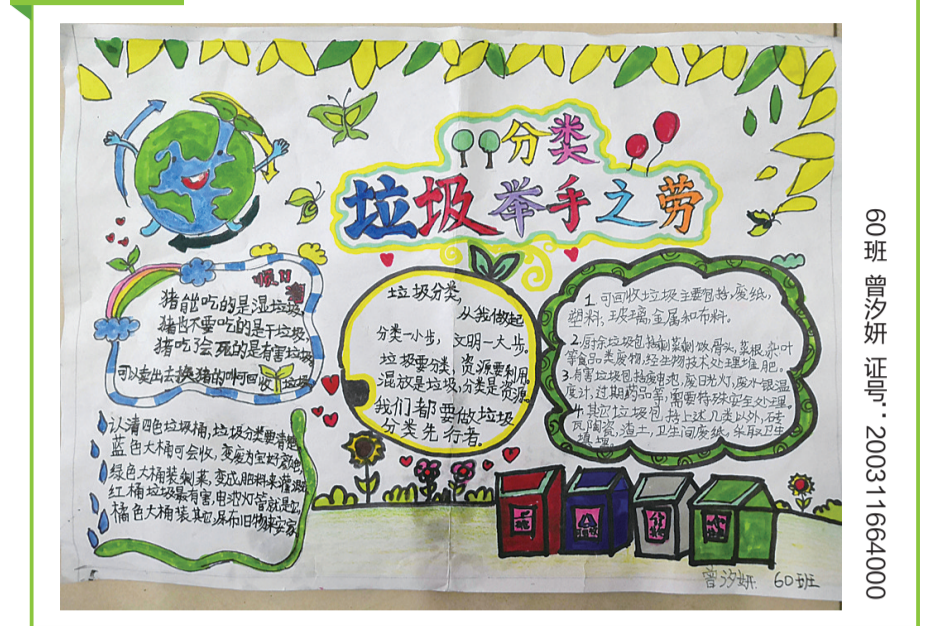 分类
垃圾举手之劳
顺口溜
猪能吃的是湿垃圾
猪也不要吃的是干垃圾
猪吃了会死的是有害垃圾
可以卖出去换猪的叫可回收垃圾
认清四色垃圾桶,垃圾分类要清楚
蓝色大桶可会收,变废为宝好
绿色大桶装剩菜,变成肥料来灌溉
红桶垃圾最有害,电池灯管就是
橘色大桶装其它,尿布旧物
垃圾分类,
从我做起
分类一小步,文明一大步。
垃圾要分类,资源要利用。
混放是垃圾,分类是资源。
我们都要做垃圾
分类先行者。
1.可回收垃圾主要包括,废纸,
塑料,玻璃,金属和布料。
2.厨余垃圾包括剩菜剩饭骨头,菜根,杂叶
等食品类废物,经生物技术处理堆肥。
3.有害垃圾包括废电池,废日光灯,废水银温
度计,过期药品等,需要特殊安全处理。
4.其它垃圾包括上述几类以外,砖
瓦陶瓷,渣土,卫生间废纸,采取卫生
填埋
曾汐妍 60班
60班 曾汐妍 证号:200311664000